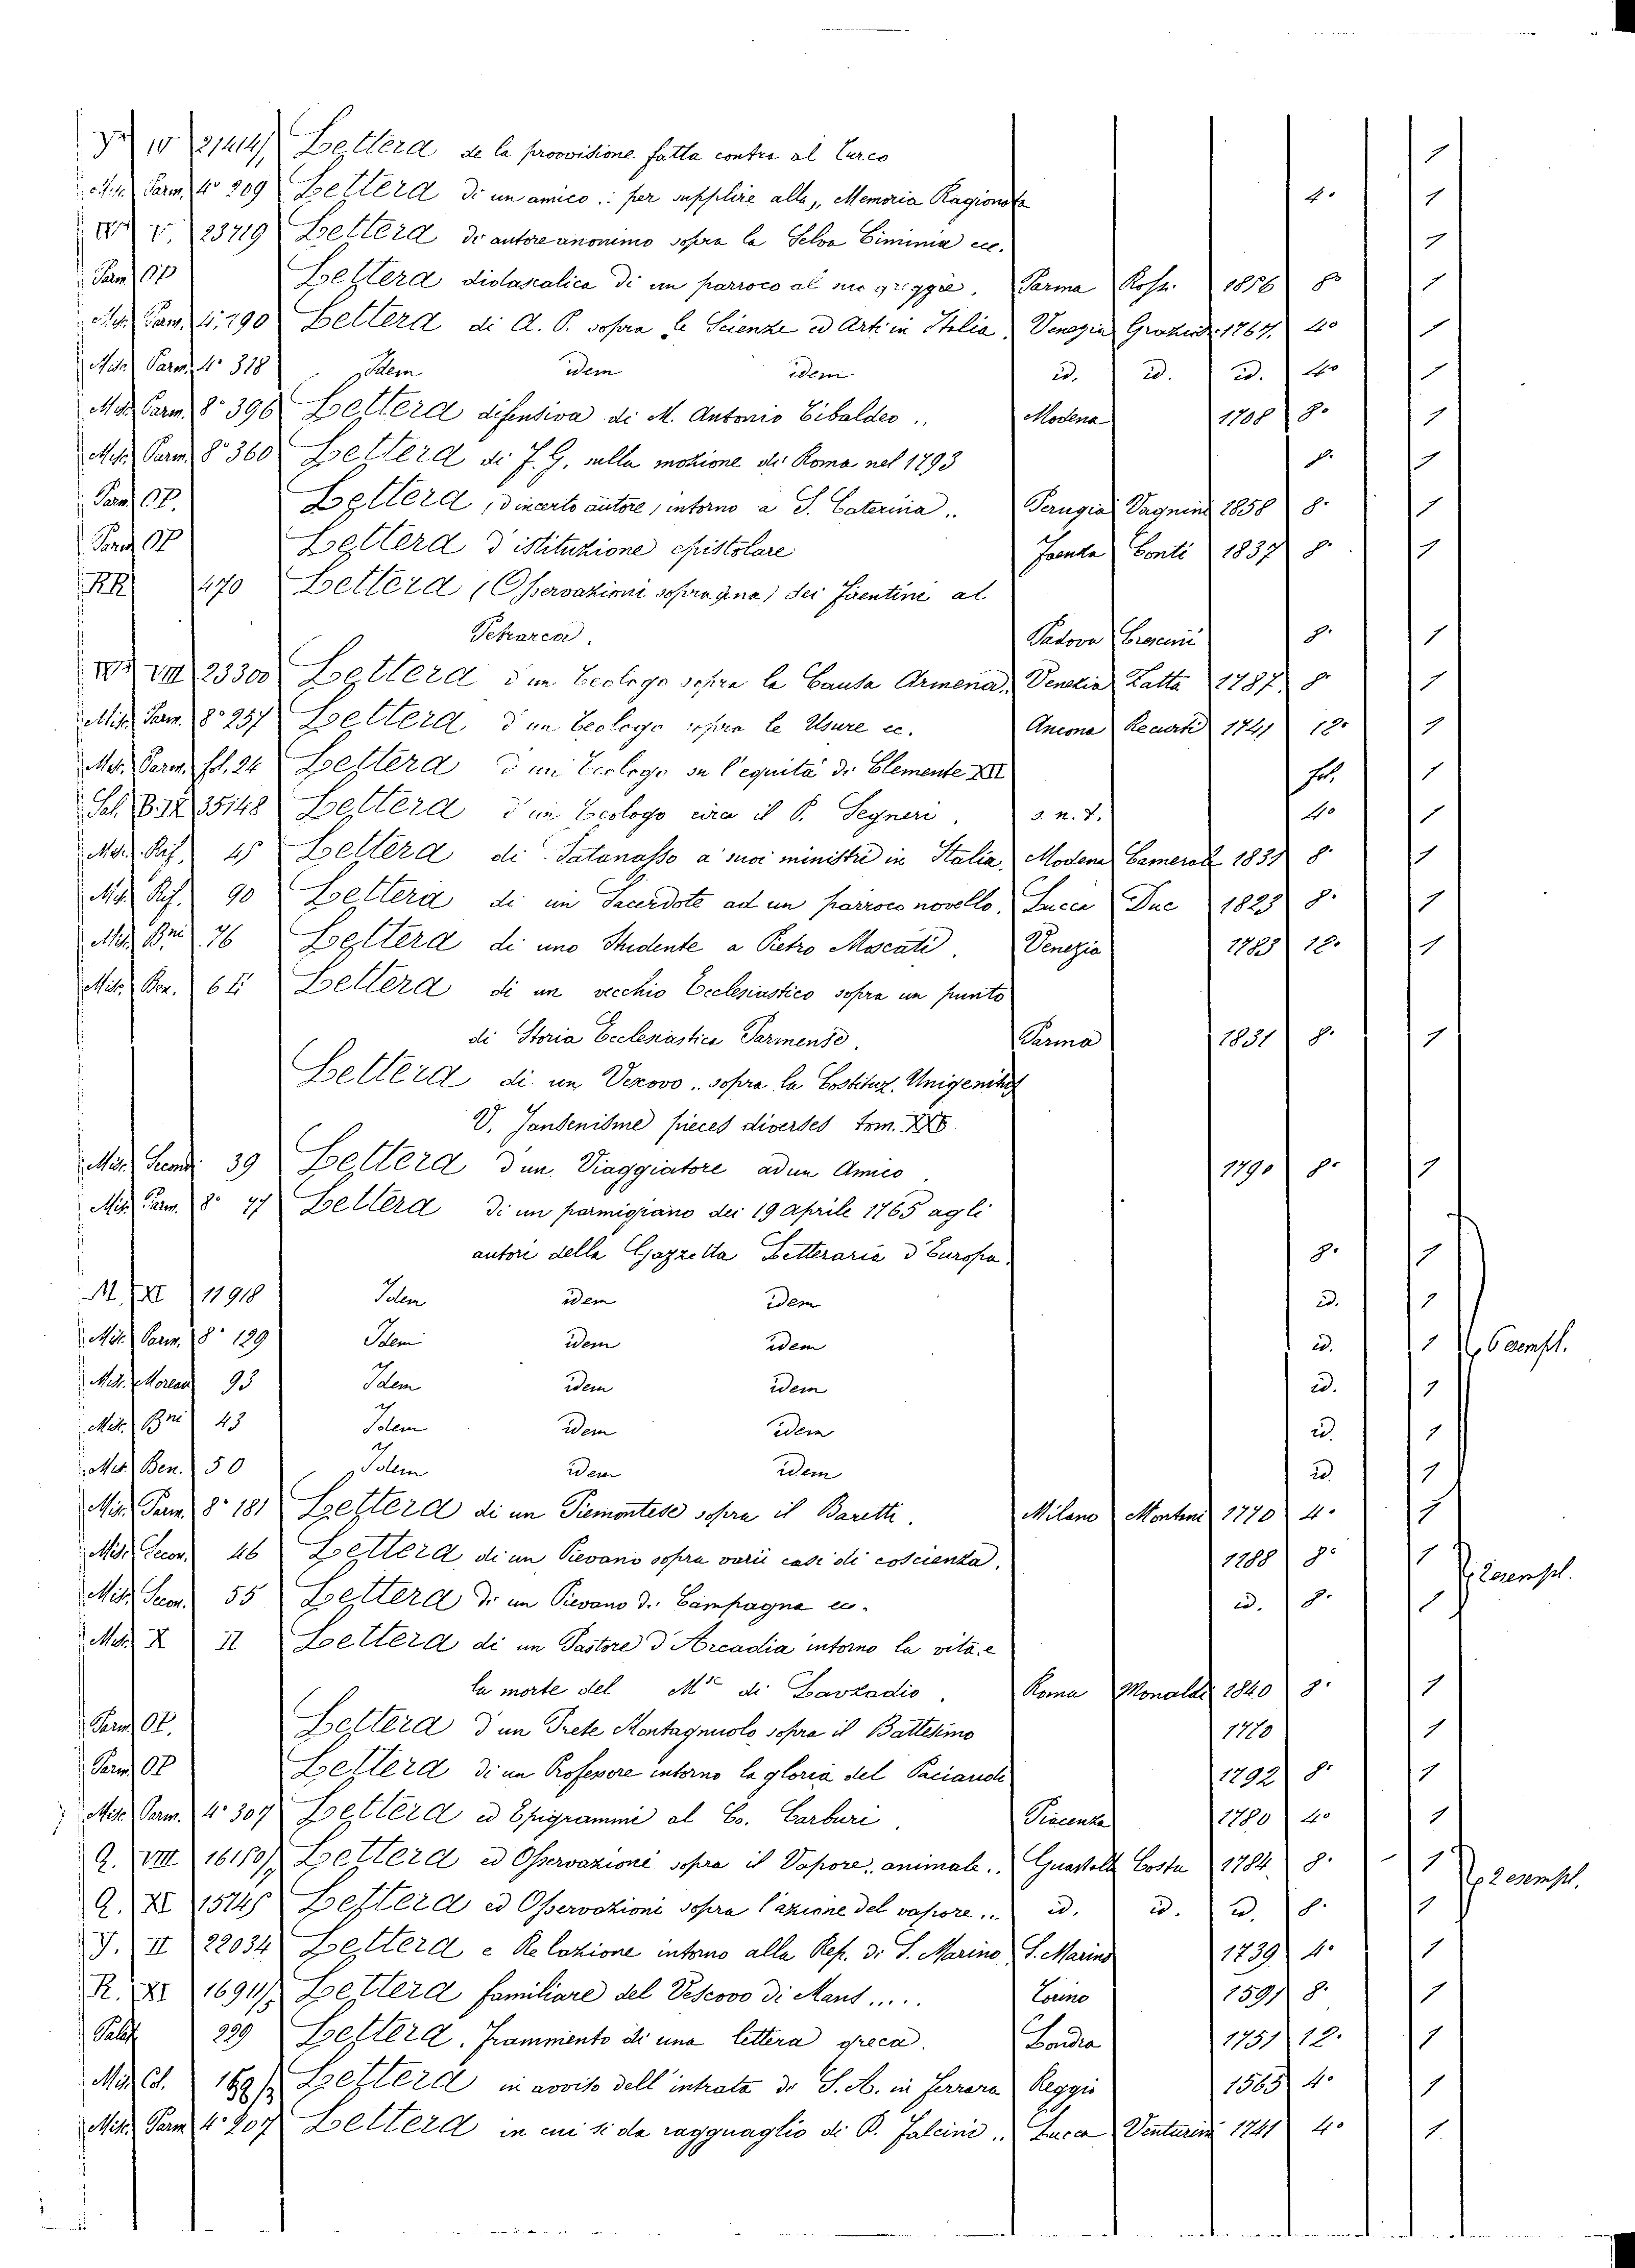 IV 21414/1 Lettera de la provvisione fatta contra al Turco 1
Misc. Parm. 4° 209 Lettera di un amico .. per supplire alla, Memoria Ragionata 4° 1
V. 23719 Lettera di autore anonimo sopra la Selva Ciminia ecc. 1
Parm. OP Lettera didascalica di un parroco al suo gregge. Parma 1856 8° 1
Misc. Parm. 4°. 190 Lettera di A. P. sopra le Scienze ed Arti in Italia, Venezia 1764. 4° 1
Misc. Parm. 4° 318 Idem idem idem id. id. id. 4° 1
Misc. Parm. 8° 396 Lettera difensiva di M. Antonio Tibaldeo .. Modena 1708 8° 1
Misc. Parm. 8° 360 Lettera di J. G. sulla mozione di Roma nel 1793 8° 1
Parm. O.P. Lettera, d'incerto autore, intorno a S. Caterina .. Perugia Vagnini 1858 8° 1
Parm. OP Lettera d'istituzione epistolare Faenza Conti 1837 8° 1
RR 470 Lettera (Osservazioni sopra una) dei Fiorentini al
Petrarca. Padova Crescini 8° 1
VIII 23300 Lettera d'un Teologo sopra la Causa Armena, Venezia Zatta 1787 8° 1
Misc. Parm. 8° 257 Lettera d'un Teologo sopra le Usure ec. Ancona 1741 12° 1
Misc. Parm. fol. 24 Lettera d'un Teologo su l'equità di Clemente XII fol. 1
Sal. B. IX 35148 Lettera d'un Teologo circa il P. Segneri. s. n. t. 4° 1
Misc. Rif. 45 Lettera di Satanasso a' suoi ministri in Italia, Modena Camerale 1831 8° 1
Misc. Rif. 90 Lettera di un Sacerdote ad un parroco novello. Lucca Duc 1823 8° 1
Misc. Bni 76 Lettera di uno Studente a Pietro Moscati. Venezia 1783 12° 1
Misc. Ben. 64 Lettera di un vecchio Ecclesiastico sopra un punto
di Storia Ecclesiastica Parmense. Parma 1831 8° 1
Lettera di un Vescovo .. sopra la Costituz. Unigenitus
V. Jansenisme pieces diverses tom. XXV
Misc. Second. 39 Lettera d'un Viaggiatore ad un Amico. 1790 8° 1
Misc. Parm. 8° 47 Lettera di un parmigiano dei 19 Aprile 1765 agli
autori della Gazzetta Letteraria d'Europa. 8° 1
M. XI 11918 Idem idem idem id. 1
Misc. Parm. 8° 129 Idem idem idem id. 1 6 esempl.
Misc. Moreau 93 Idem idem idem id. 1
Misc. Bni 43 Idem idem idem id. 1
Misc. Ben. 50 Idem idem idem id. 1
Misc. Parm. 8° 181 Lettera di un Piemontese sopra il Baretti. Milano Montani 1770 4° 1
Misc. Secon. 46 Lettera di un Pievano sopra varii casi di coscienza. 1788 8° 1
2 esempl.
Misc. Secon. 55 Lettera di un Pievano di Campagna ec. id. 8° 1
Misc. X 11 Lettera di un Pastore d'Arcadia intorno la vita e
la morte del Mse di Savzadio. Roma Monaldi 1840 8° 1
Parm. OP. Lettera d'un Prete Montagnuolo sopra il Battesimo 1770 1
Parm. OP Lettera di un Professore intorno la gloria del Paciaudi 1792 8° 1
Misc. Parm. 4° 307 Lettera ed Epigrammi al Co. Carburi. Piacenza 1780 4° 1
Q. VIII 16150/ Lettera ed Osservazioni sopra il Vapore animale .. Guastalla Costa 1784 8° 1
2 esempl.
Q. XI 15745 Lettera ed Osservazioni sopra l'azione del vapore ... id. id. id. 8° 1
J. II 22034 Lettera e Relazione intorno alla Rep. di S. Marino S. Marino 1739 4° 1
R. XI 16911/ Lettera familiare del Vescovo di Mans ..... Torino 1591 8° 1
Palat. 229 Lettera. Frammento di una lettera greca. Londra 1751 12° 1
Misc. Cl. 169/2 Lettera in avviso dell'intrata di S. A. in Ferrara Reggio 1565 4° 1
Misc. Parm. 4° 207 Lettera in cui si da ragguaglio di B. Falcini .. Lucca Venturini 1741 4° 1